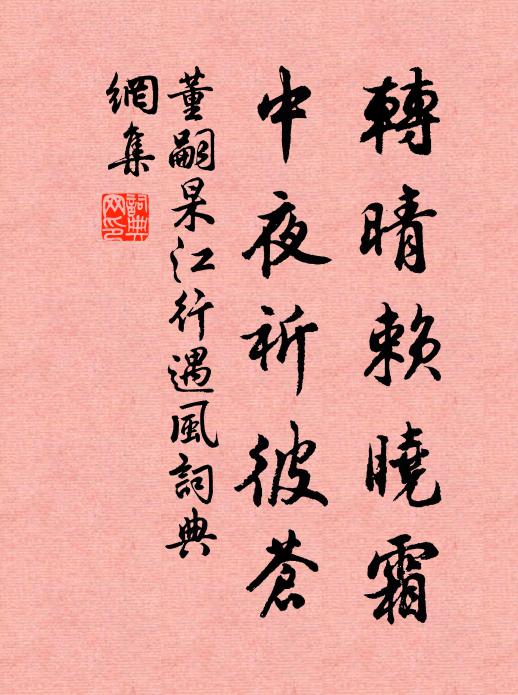 轉晴賴曉霜
中夜祈彼蒼
董嗣杲江行遇風詞典
網集
詞典
网印